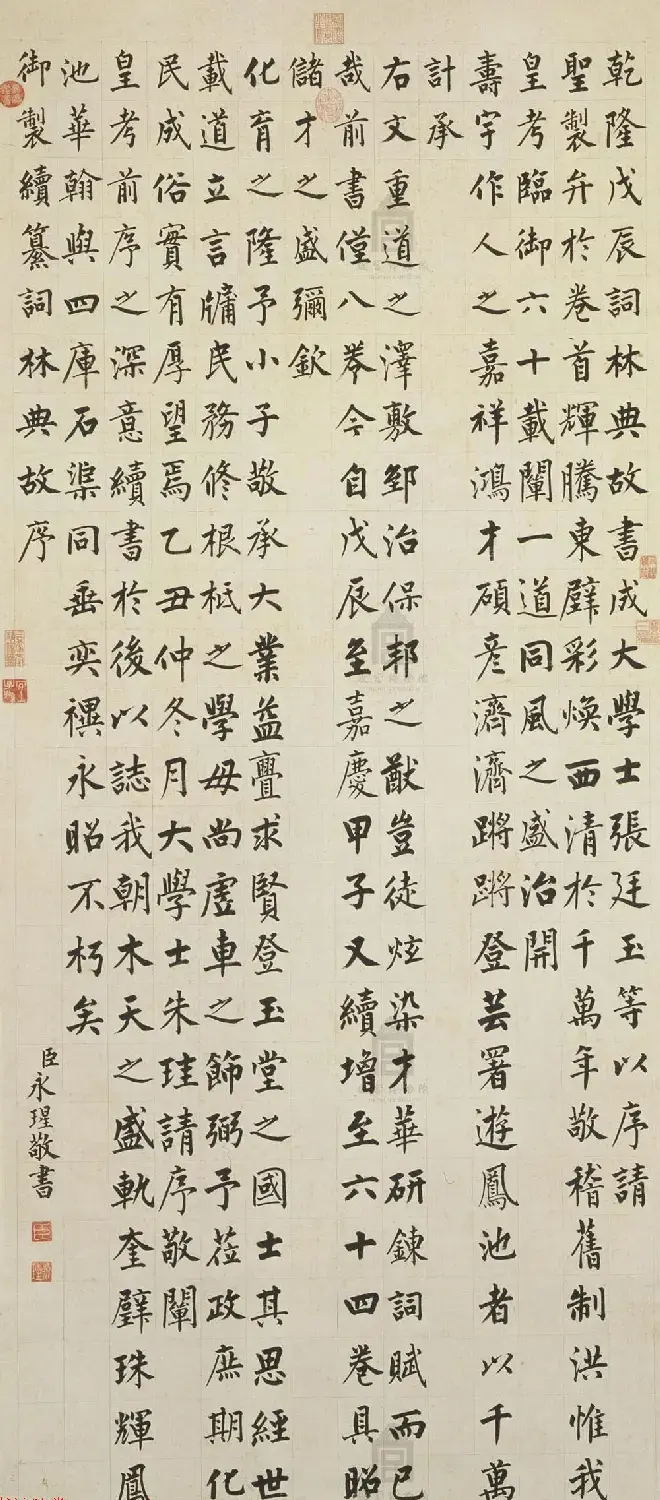 乾隆戊辰詞林典故書成大學士張廷玉等以序請
聖製弁於卷首輝騰東壁彩煥西清於千萬年敬稽舊制洪惟我
皇考臨御六十載闡一道同風之盛治開
壽宇作人之嘉祥鴻才碩彥濟濟蹡蹡登芸署遊鳳池者以千萬
計承
右文重道之澤敷郅治保邦之猷豈徒炫染才華研鍊詞賦而已
哉前書僅八卷今自戊辰至嘉慶甲子又續增至六十四卷具昭
儲才之盛彌欽
化育之隆予小子敬承大業益亹求賢登玉堂之國士其思經世
載道立言牖民務修根柢之學毋尚虛車之飾弼予莅政庶期化
民成俗實有厚望焉乙丑仲冬月大學士朱珪請序敬闡
皇考前序之深意續書於後以誌我朝木天之盛軌奎璧珠輝鳳
池華翰與四庫石渠同垂奕禩永昭不朽矣
御製續纂詞林典故序
臣永瑆敬書